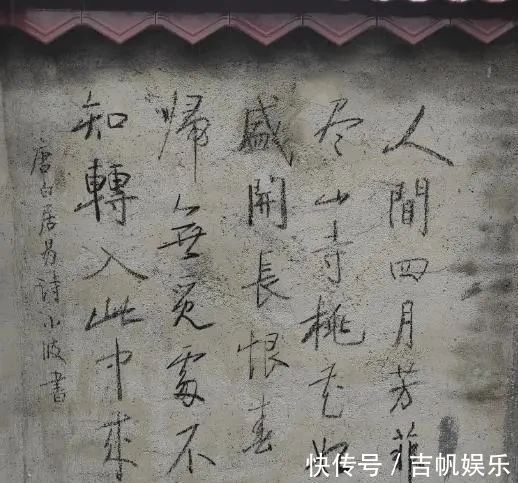 人間四月芳菲
尽山寺桃花始
盛開長恨春
帰無覓處不
知轉入此中來
唐白居易詩小波書
快传号 / 吉帆娱乐